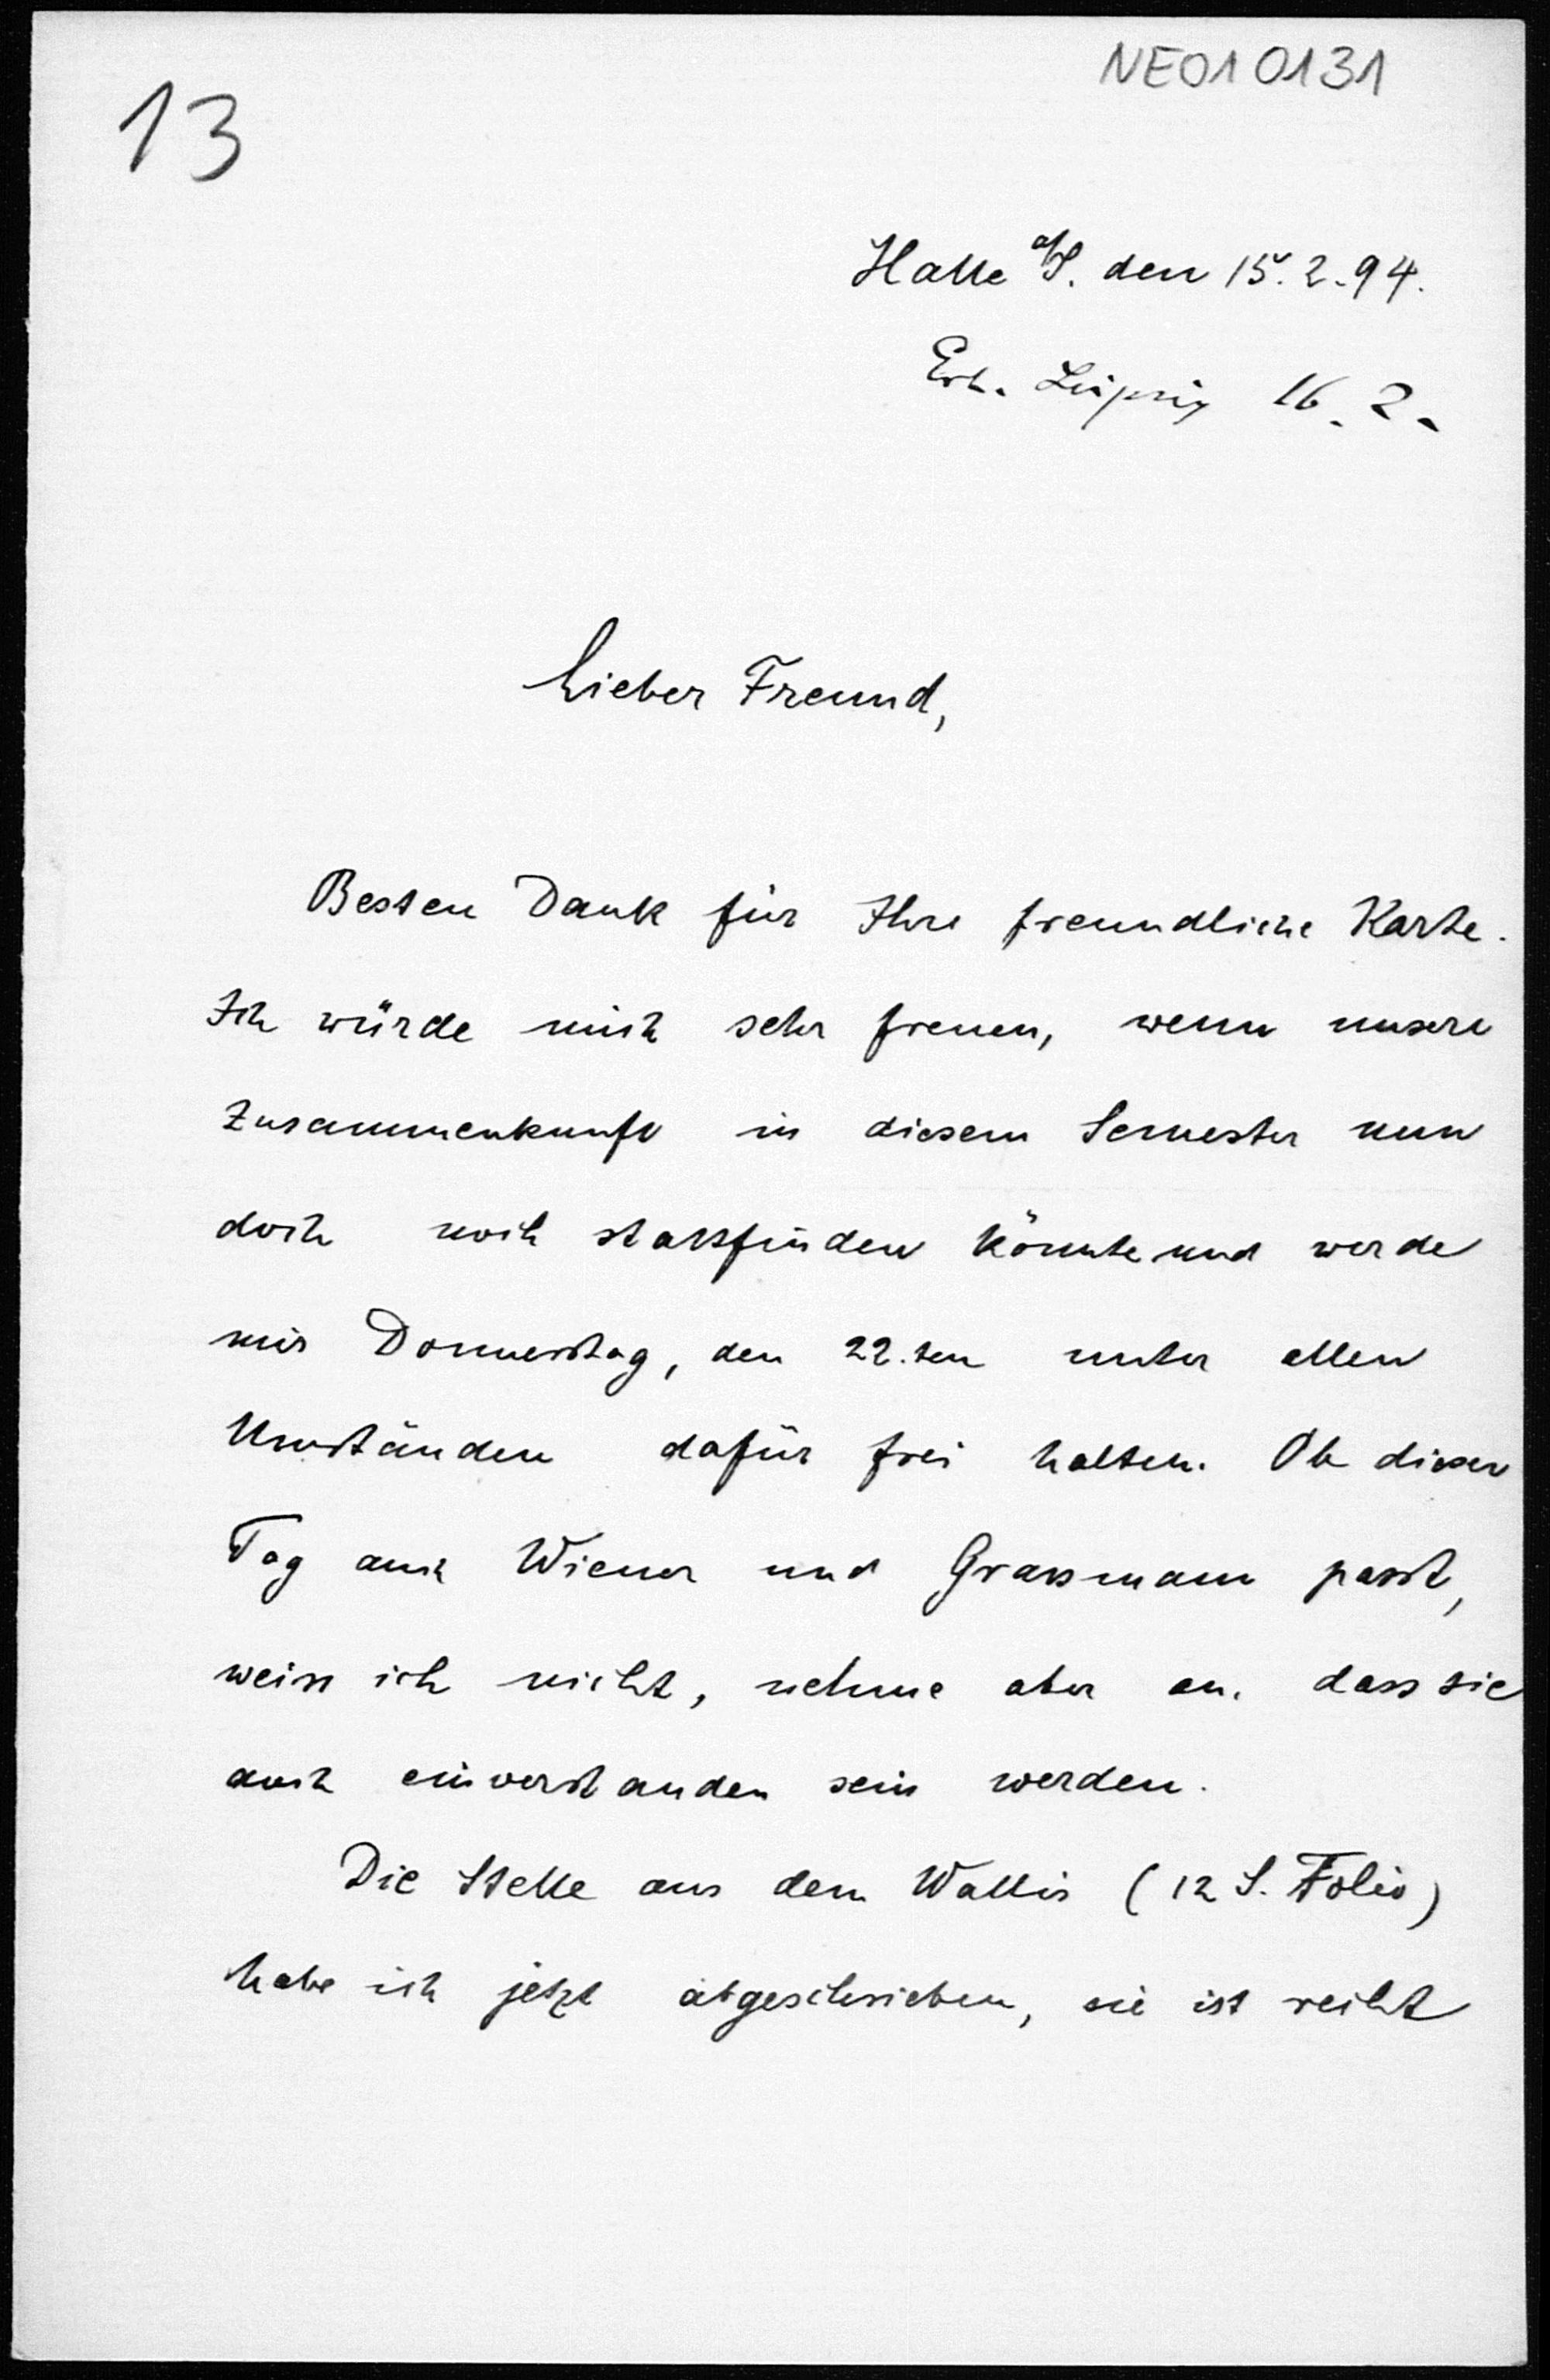 NE010131
13
Halle a/S. den 15.2.94.
Erh. Leipzig 16.2.
Lieber Freund,
Besten Dank für Ihre freundliche Karte.
Ich würde mich sehr freuen, wenn unsere
Zusammenkunft in diesem Semester nun
doch noch stattfinden könnte und werde
mir Donnerstag, den 22.ten unter allen
Umständen dafür frei halten. Ob dieser
Tag auch Wiener und Grassmann passt,
weiss ich nicht, nehme aber an, dass sie
auch einverstanden sein werden.
Die Stelle aus dem Wallis (12 S. Folio)
habe ich jetzt abgeschrieben, sie ist recht